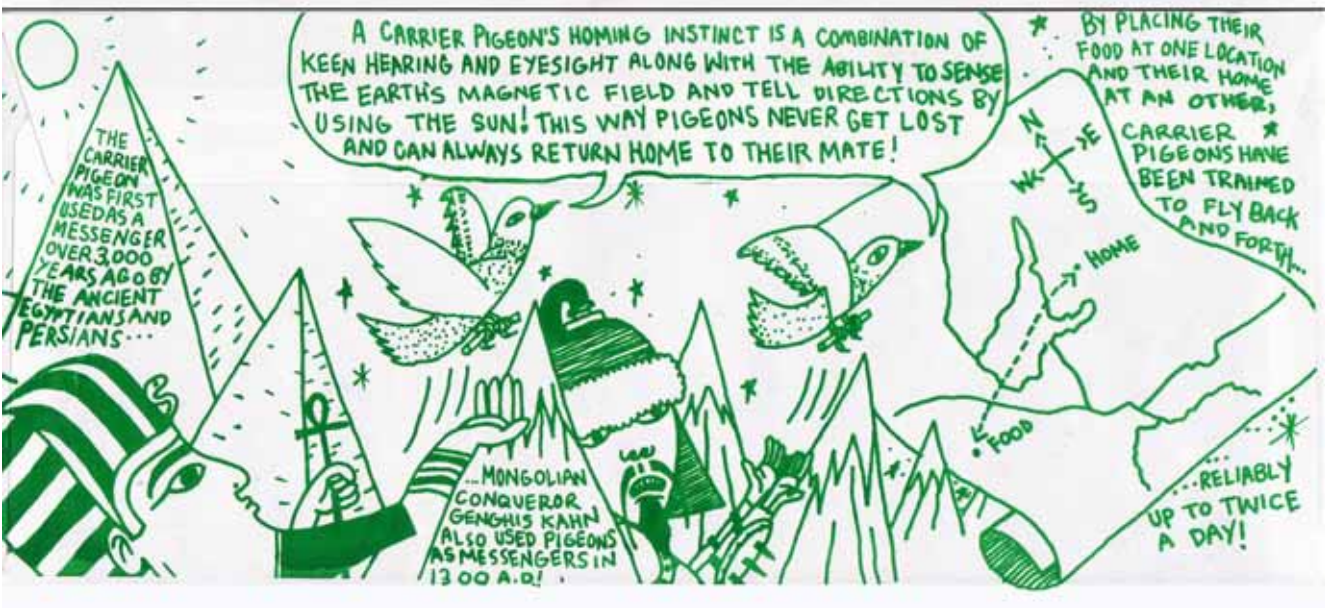 THE
CARRIER
PIGEON
WAS FIRST
USED AS A
MESSENGER
OVER 3,000
YEARS AGO BY
THE ANCIENT
EGYPTIANS AND
PERSIANS...
A CARRIER PIGEON'S HOMING INSTINCT IS A COMBINATION OF
KEEN HEARING AND EYESIGHT ALONG WITH THE ABILITY TO SENSE
THE EARTH'S MAGNETIC FIELD AND TELL DIRECTIONS BY
USING THE SUN! THIS WAY PIGEONS NEVER GET LOST
AND CAN ALWAYS RETURN HOME TO THEIR MATE!
...MONGOLIAN
CONQUEROR
GENGHIS KAHN
ALSO USED PIGEONS
AS MESSENGERS IN
1300 A.D!
BY PLACING THEIR
FOOD AT ONE LOCATION
AND THEIR HOME
AT AN OTHER,
CARRIER
PIGEONS HAVE
BEEN TRAINED
TO FLY BACK
AND FORTH...
N
E
W
S
HOME
FOOD
...RELIABLY
UP TO TWICE
A DAY!